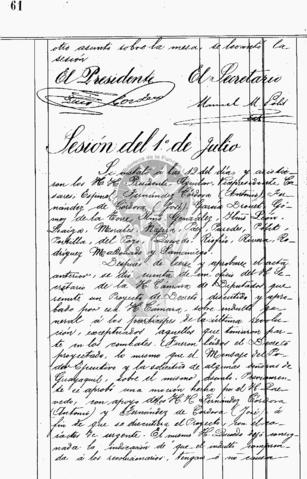 61
otro asunto sobre la mesa, se levantó la
sesión
El Presidente El Secretario
Manuel M. Pólit
Sesión del 1º de Julio
Se instaló a las 12 del día, y asistie-
ron los H.H. Presidente, Aguilar, Vicepresidente, Cá-
sares, Espinel, Fernández Córdova (Antonio), Fer-
nández de Córdova (José), García Drouet, Gó-
mez de la Torre, González, León,
Morales, Páez, Paredes, Pólit
Portilla, del Pozo, Riofrío, Rivera, Ro-
dríguez Maldonado y Samaniego.
Después de leerse y aprobarse el acta
anterior, se dió cuenta de un oficio del H. Se-
cretario de la H. Cámara de Diputados que
remite un Proyecto de Decreto discutido y apro-
bado por esa H. Cámara, sobre indulto ge-
neral a los partícipes de la última revolu-
ción, exceptuados aquellos que tomaron par-
te en los combates. Fueron leídos el Decreto
proyectado, lo mismo que el Mensaje del Po-
der Ejecutivo y la solicitud de algunas señoras de
Guayaquil, sobre el mismo asunto. Nuevamente
se aprobó una moción hecha por el H. Pa-
redes, con apoyo de los H.H. Fernández Córdova
(Antonio) y Fernández de Córdova (José), á
fin de que se discutiera el Proyecto con el ca-
rácter de urgente. El mismo H. dejó consig-
nada la indicación de que el indulto compren-
da á los revolucionarios, tengan ó no causa